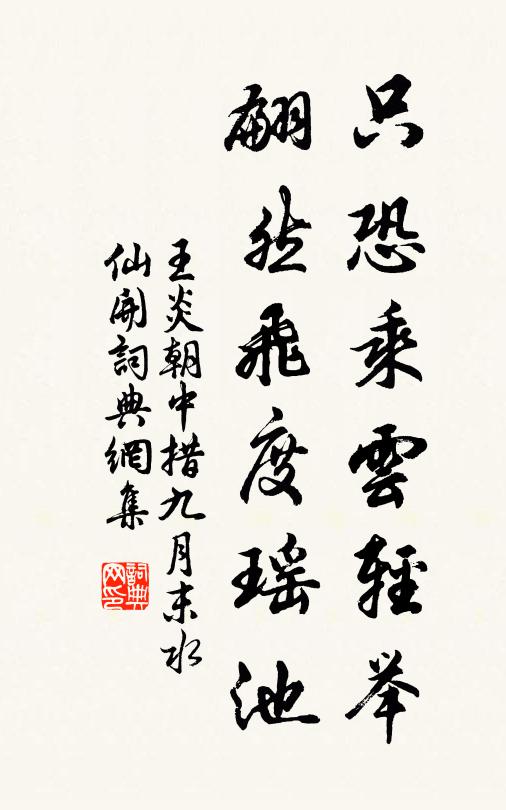 只恐乘雲輕举
翩然飛度瑶池
王炎朝中措九月末水
仙開詞典網集
詞典网印